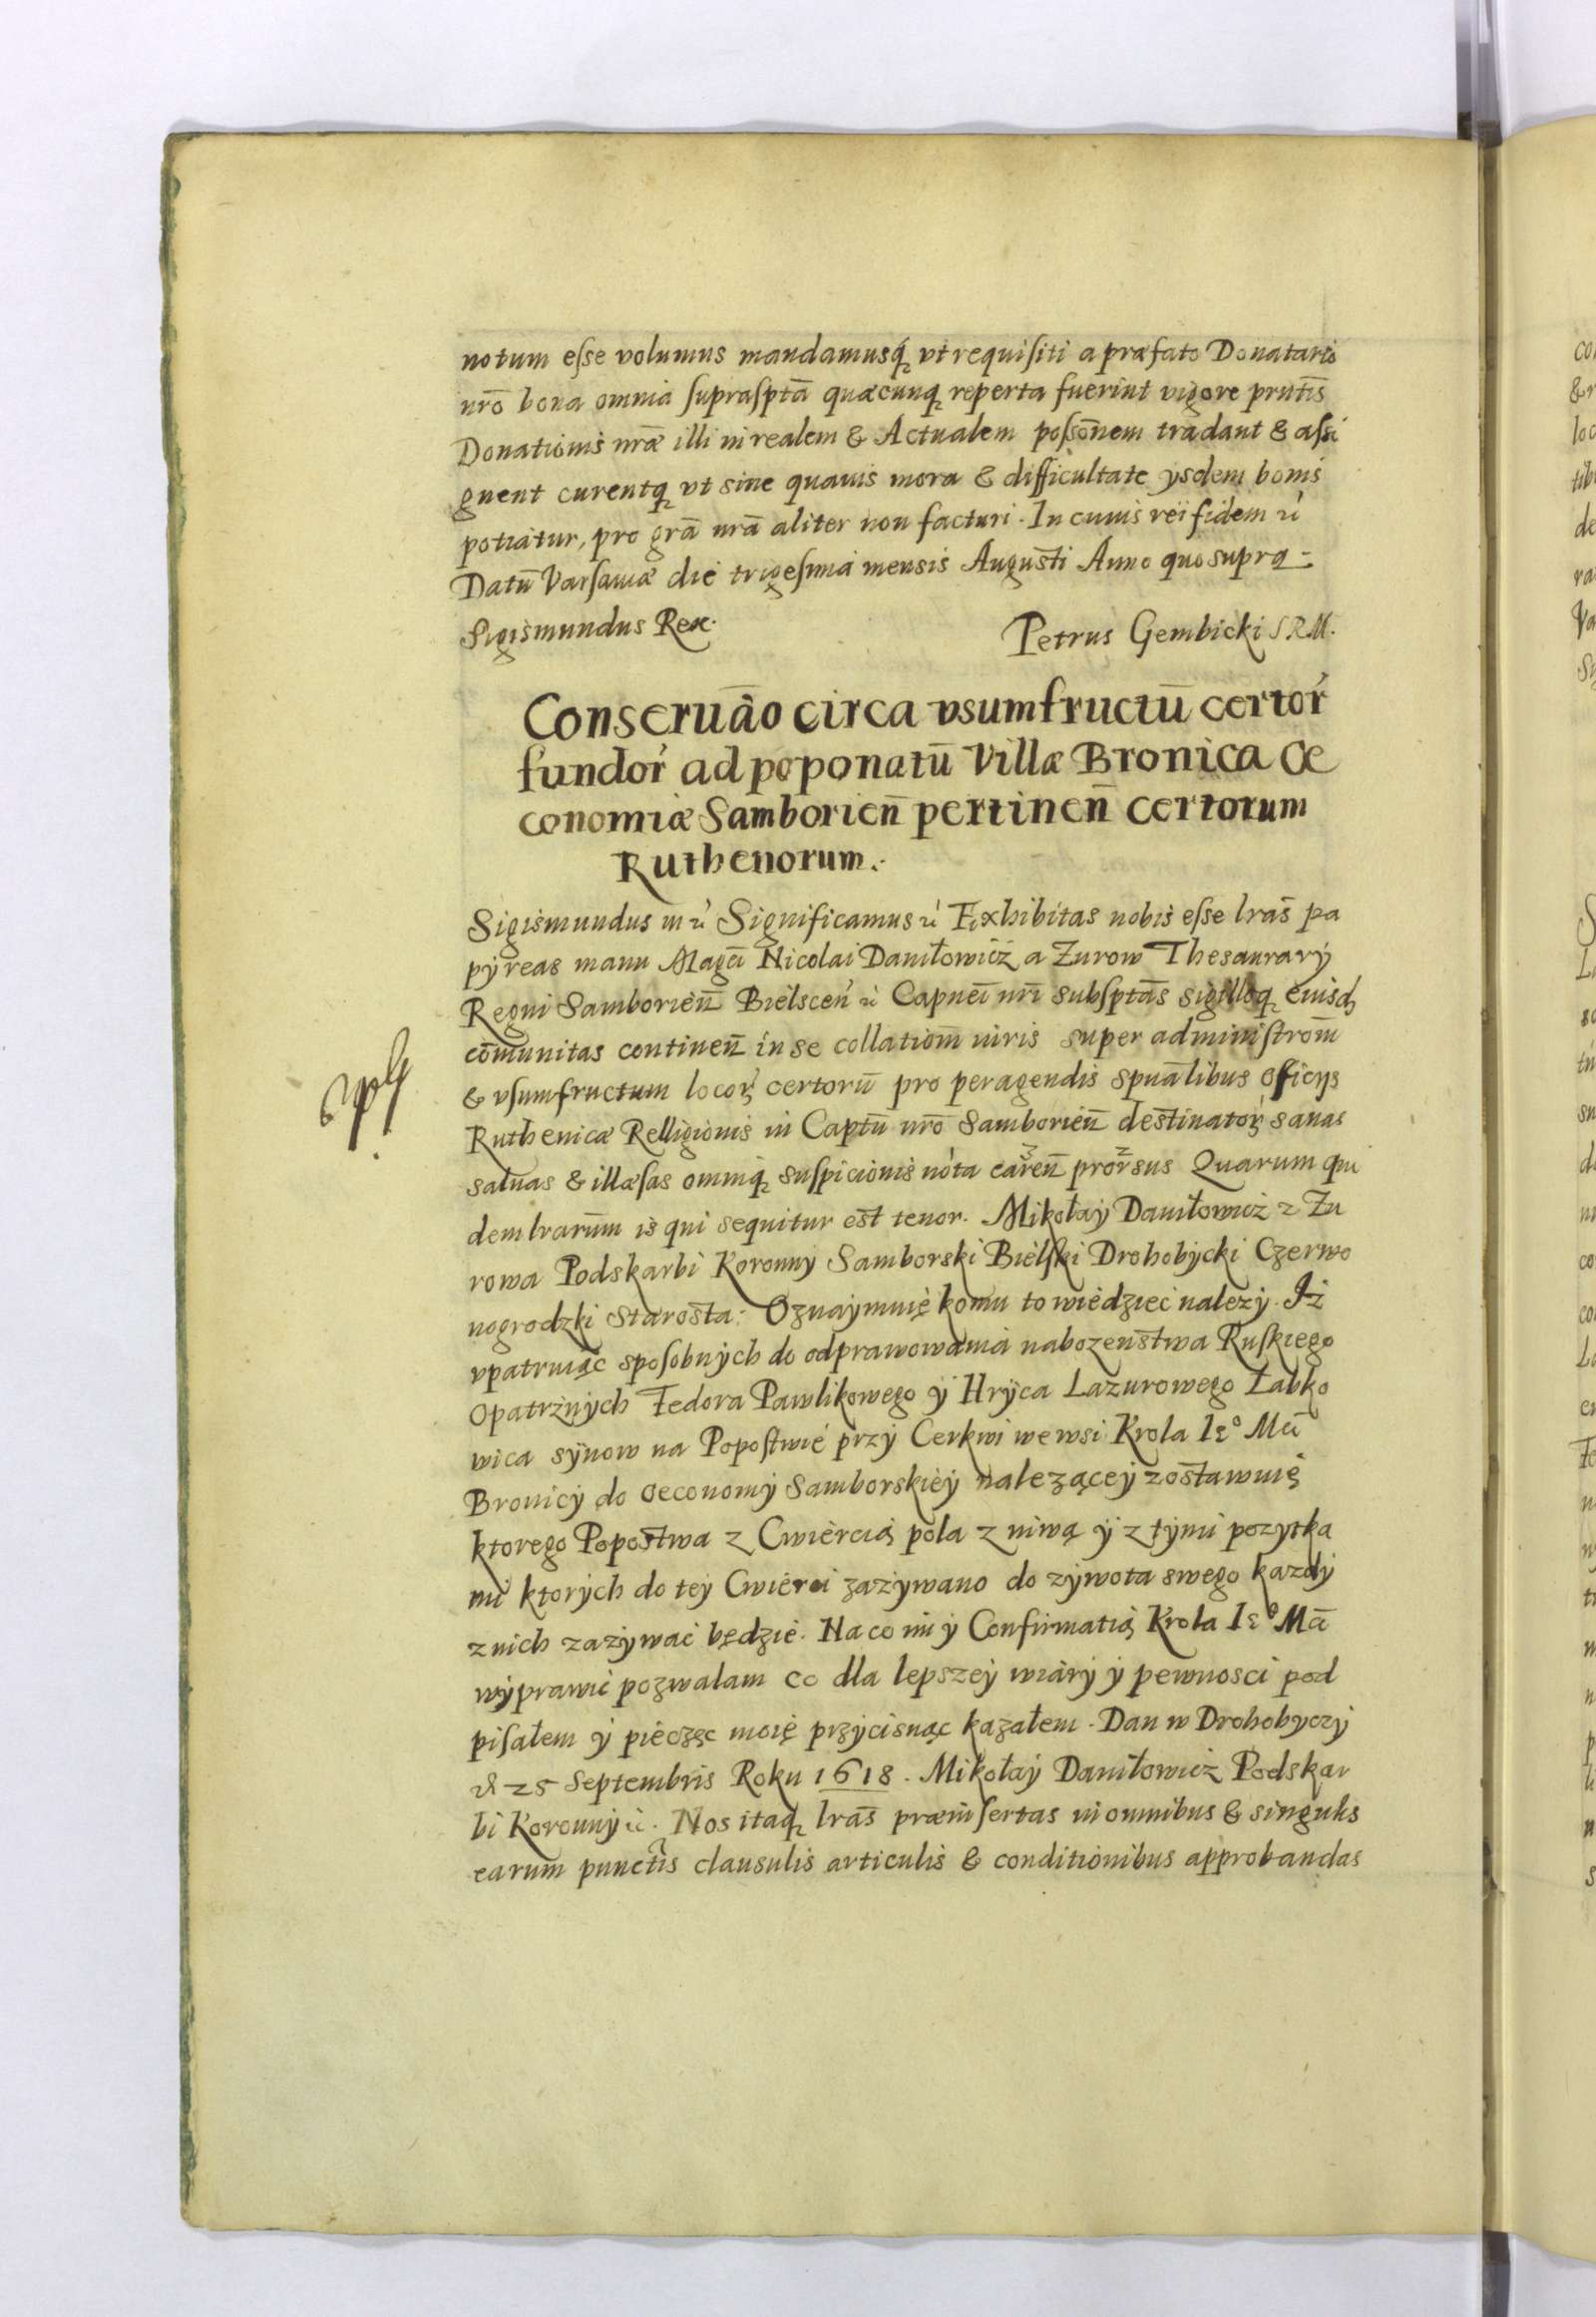 notum esse volumus mandamusq́ꝫ vt requisiti a præfato Donatario
nr̄o bona omnia suprasptā quæcunqꝫ reperta fuerint vigore prnt̄is
Donationis nr̄æ illi in realem & Actualem possōnem tradant & assi
gnent curentqꝫ vt sine quauis mora & difficultate ysdem bonis
potiatur, pro grā nrā aliter non facturi. In cuius rei fidem ⁊c̓
Datū Varsauiæ die trigesima mensis Augusti Anno quo supra
Sigismundus Rex. Petrus Gembicki S R M.
Conseruāo circa vsumfructū certor̓
fundor̓ ad poponatū Villæ Bronica Œ
conomiæ Samborien̄ pertinen̄ certorum
Ruthenorum.
Sigismundus III ⁊c̓ Significamus ⁊c̓ Exhibitas nobis esse lrās pa
pýreas manu Magci Nicolai Daniłowicż a Zurow Thesaurarý
Regni Samborien̄ Bielscen̓ ⁊c̓ Capnei nr̄i subsptās sigilloqꝫ eiusdꝫ
com̄unitas continen̄ in se collatiom̄ iuris super administrom̄
& vsumfructum locoꝝ certorū pro peragendis spuālibus officys
Ruthenicæ Relligionis in Captū nr̄o Samborien̄ destinatoꝝ sanas
saluas & illæsas omniqꝫ suspicionis nota caren̄ prorsus Quarum qui
dem lrarūm is qui sequitur est tenor. Mikołaý Daniłowicż z Zu
rowa Podskarbi Koronný Samborski Bielski Drohobýcki Czerwo
nogrodzki Starosta. Oznaýmuię komu to wiedzieć nalezý. Iż
vpatruiąc sposobných do odprawowania nabozenstwa Ruskiego
Opatrżných Fedora Pawlikowego ý Hrýca Lazurowego Łabko
wica sýnow na Popostwie przý Cerkwi we wsi Krola Iᵉ° Mci
Bronicý do Oeconomý Samborskieý nalezącey zostawuię
ktorego Popostwa z Cwiercią pola z niwą ý z tými pozytka
mi ktorých do teý Cwierci zażywano do zýwota swego kazdý
z nich zazýwać będzie. Na co im ý Confirmatią Krola Iᵉ° Mci
wýprawić pozwalam co dla lepszeý wiarý ý pewnosci pod
pisałem ý pieczęc moię przýcisnąc kazałem. Dan w Drohobyczý
d 25 Septembris Roku 1618. Mikołaý Daniłowicż Podskar
bi Koronný ⁊c̓. Nos itaqꝫ lrās præinsertas in omnibus & singulis
earum punctis clausulis articulis & conditionibus approbandas